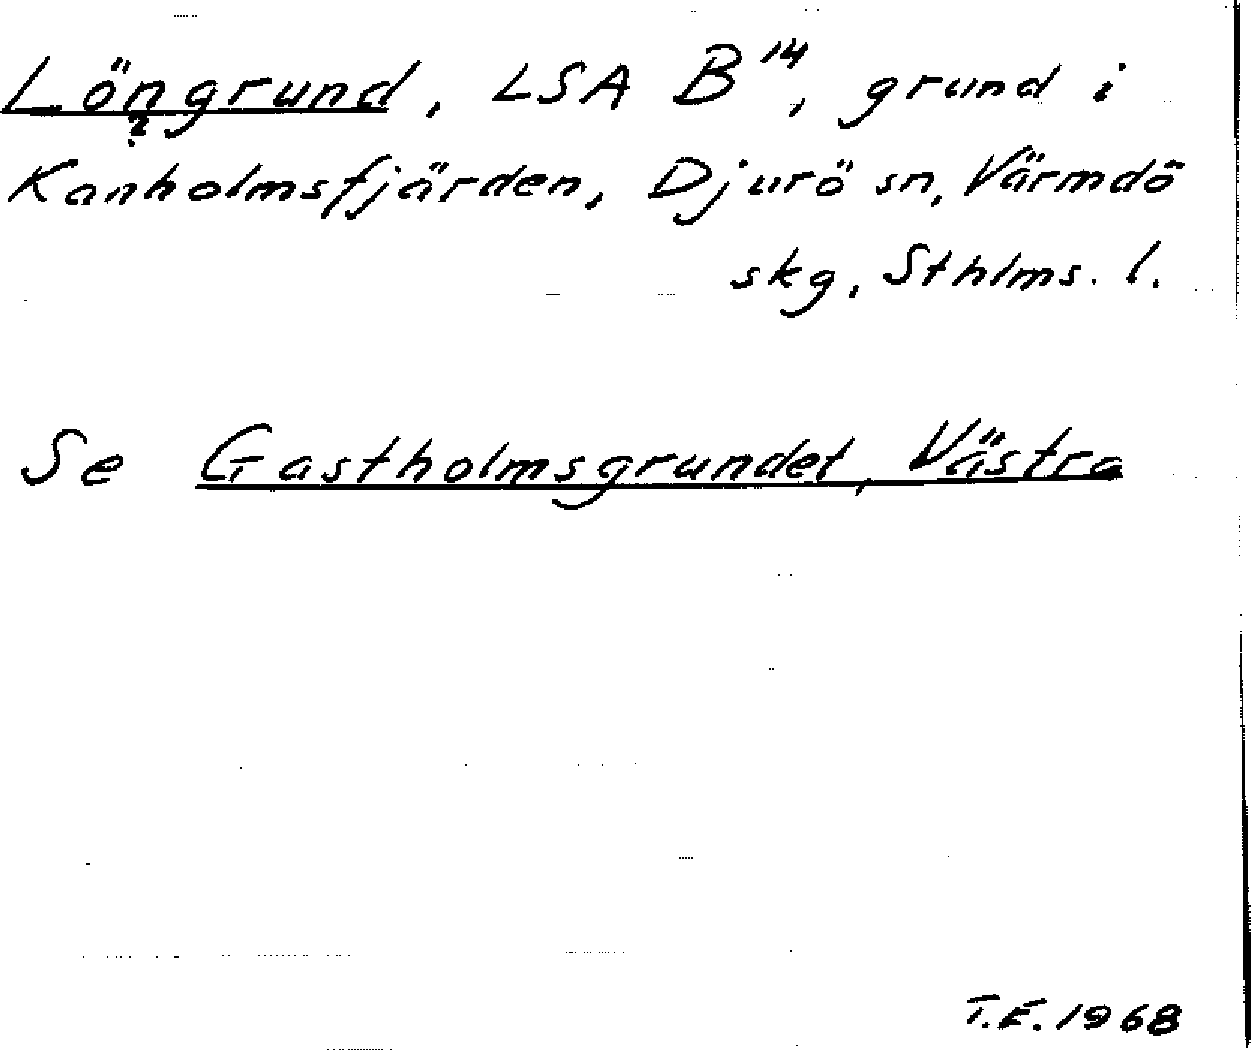 Löngrund, LSA B¹⁴, grund i
?
Kanholmsfjärden, Djurö sn, Värmdö
skg, Sthlms. l.
Se Gastholmsgrundet, Västra
T.E. 1968